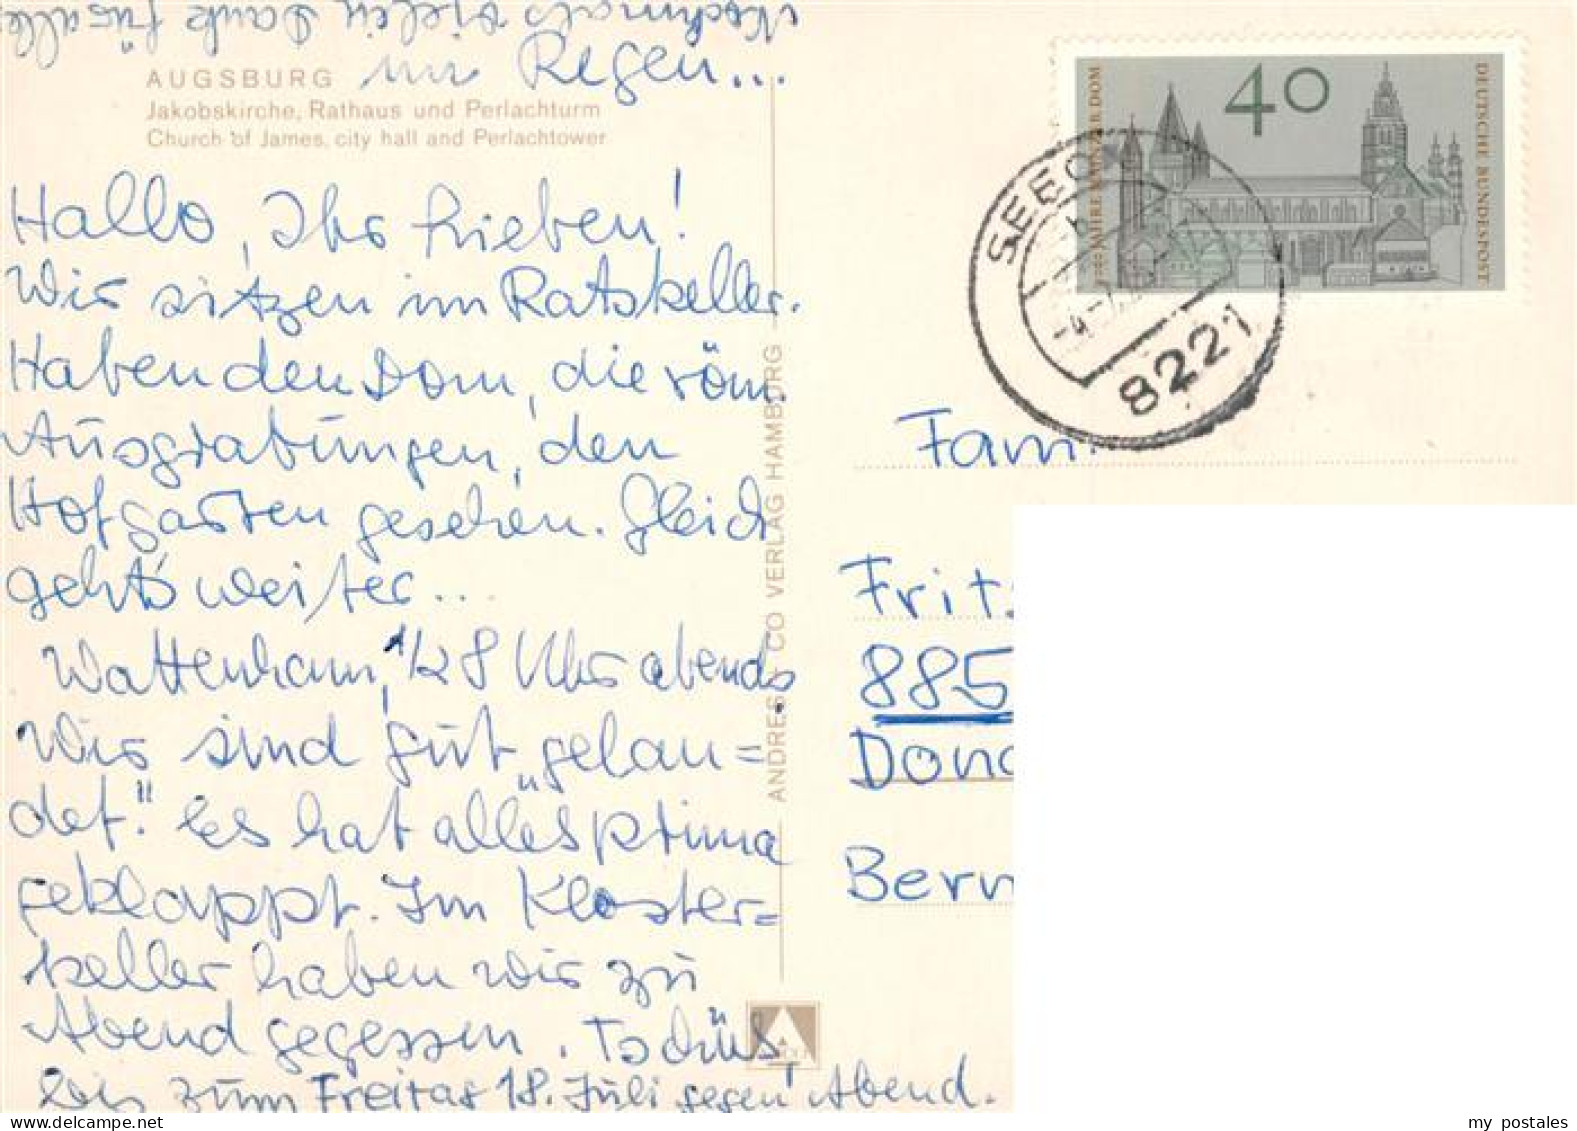 Nochmals vielen Dank für alles
im Regen...
AUGSBURG
Jakobskirche, Rathaus und Perlachturm
Church of James, city hall and Perlachtower
Hallo, Ihr Lieben!
Wir sitzen im Ratskeller.
Haben den Dom, die röm.
Ausgrabungen, den
Hofgarten gesehen. Gleich
geht's weiter...
Wattenham, 1/2 8 Uhr abends
Wir sind gut „gelan=
det". Es hat alles prima
geklappt. Im Kloster=
keller haben wir zu
Abend gegessen. Tschüß,
bis zum Freitag 18. Juli gegen Abend.
ANDRES + CO VERLAG HAMBURG
40
1000 JAHRE MAINZER DOM
DEUTSCHE BUNDESPOST
SEEON
8221
Fam.
Fritz
885
Dona
Bern
my postales